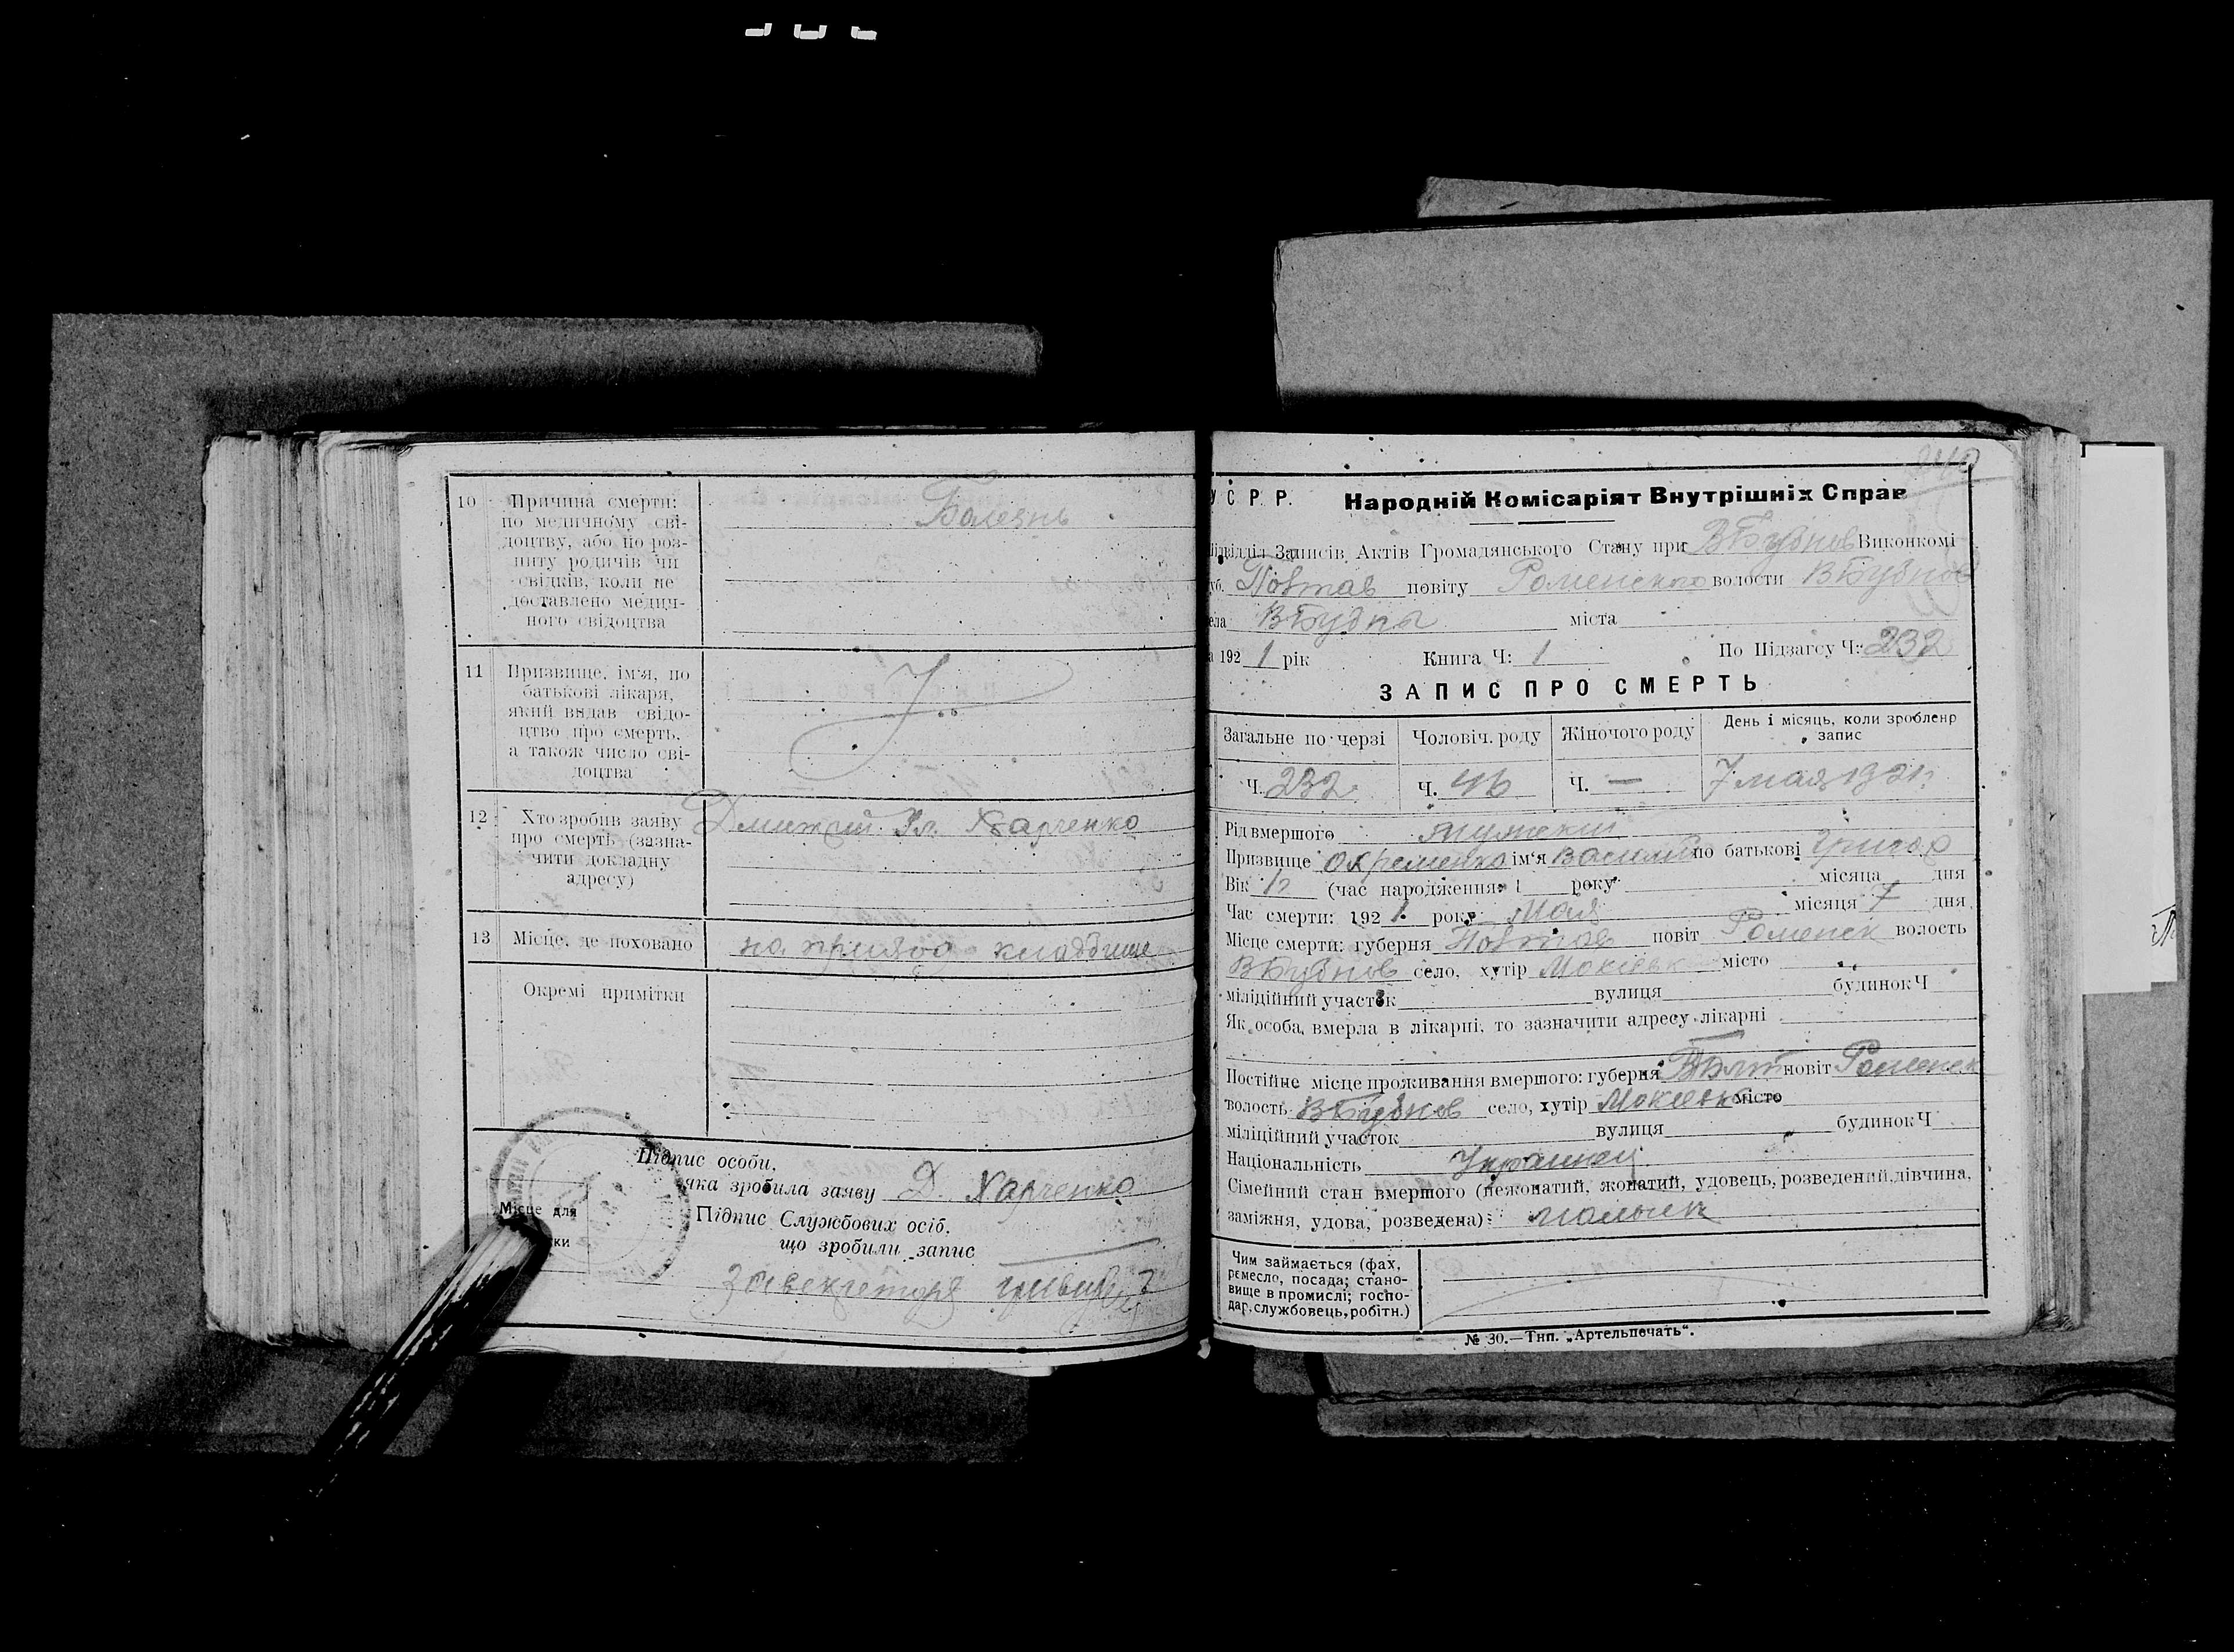 10 Причина смерти:
по медичному сві-
доцтву, або по роз-
питу родичів чи
свідків, коли не
доставлено медич-
ного свідоцтва
Болезнь
11 Призвище, ім'я, по
батькові лікаря,
який видав свідо-
цтво про смерть,
а також число сві-
доцтва
12 Хто зробив заяву
про смерть (зазна-
чити докладну
адресу)
Дмитрий Ил. Харченко
13 Місце, де поховано
на приход кладбище
Окремі примітки
Підпис особи,
яка зробила заяву Д. Харченко
Місце для
Підпис Службових осіб.
що зробили запис
240
У С. Р. Р. Народній Комісаріят Внутрішніх Справ
Підвідділ Записів Актів Громадянського Стану при ВБубнов Виконкомі
губ. Полтав повіту Роменского волости ВБубнов
села ВБубны міста
на 1921 рік Книга Ч: 1 По Підзагсу Ч: 232
ЗАПИС ПРО СМЕРТЬ
Загальне по черзі Чоловіч. роду Жіночого роду День і місяць, коли зроблено
запис
Ч. 232 Ч. 46 Ч. — 7 мая 1921 г
Рід вмершого мужский
Призвище Охременко ім'я Василий по батькові Григор
Вік 12 (час народження: 1 року місяца дня
Час смерти: 1921 року Мая місяця 7 дня
Місце смерти: губерня Полтав повіт Роменск волость
ВБубнов село, хутір Мокіевк місто
міліційний участок вулиця будинок Ч
Як особа, вмерла в лікарні, то зазначити адресу лікарні
Постійне місце проживання вмершого: губерня Полт повіт Роменск
волость ВБубнов село, хутір Мокіевк місто
міліційний участок вулиця будинок Ч
Національність Украинец
Сімейний стан вмершого (нежонатий, жонатий, удовець, розведений, дівчина,
заміжня, удова, розведена): мальчик
Чим займається (фах,
ремесло, посада; стано-
вище в промислі; госпо-
дар, службовець, робітн.)
№ 30.—Тип. „Артельпечать“.